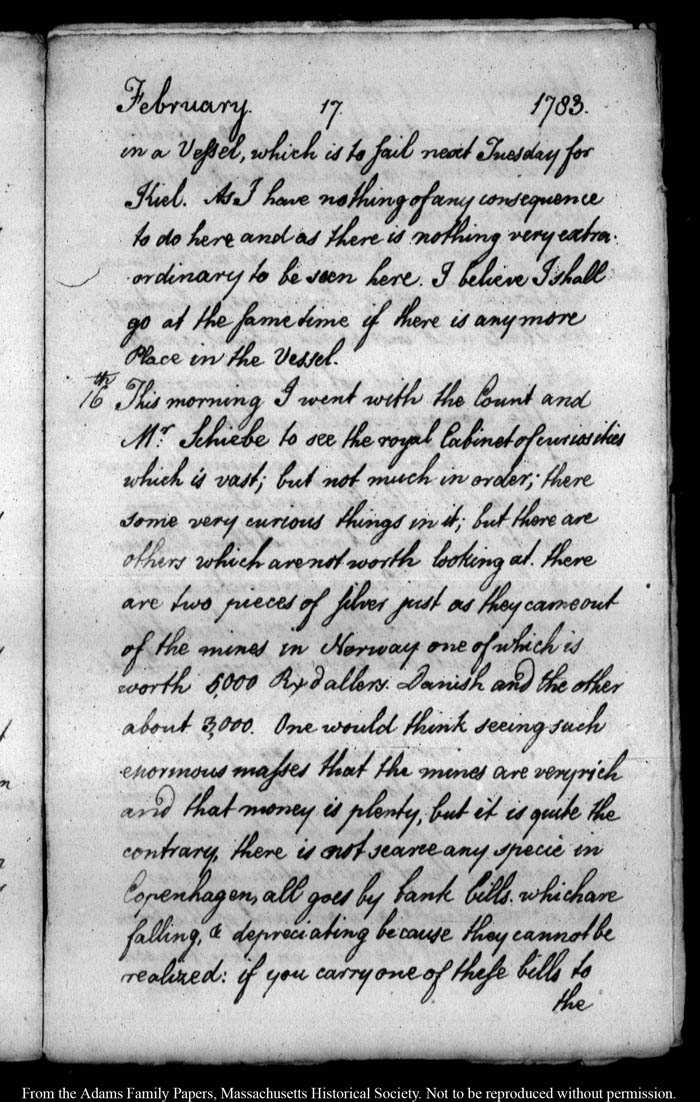 February. 17. 1783.
in a Veſsel, which is to ſail next Tuesday for
Kiel. As I have nothing of any consequence
to do here and as there is nothing very extra-
ordinary to be seen here. I believe I shall
go at the ſame time if there is any more
Place in the Vessel.
16th This morning I went with the Count and
Mr. Schiebe to see the royal Cabinet of curiosities
which is vast; but not much in order; there
some very curious things in it; but there are
others which are not worth looking at. there
are two pieces of ſilver just as they came out
of the mines in Norway one of which is
worth 5,000 Rx dallers. Danish and the other
about 3,000. One would think seeing such
enormous maſses that the mines are very rich
and that money is plenty, but it is quite the
contrary, there is not scarce any specie in
Copenhagen, all goes by bank bills. which are
falling, & depreciating because they cannot be
realized: if you carry one of theſe bills to
the
From the Adams Family Papers, Massachusetts Historical Society. Not to be reproduced without permission.